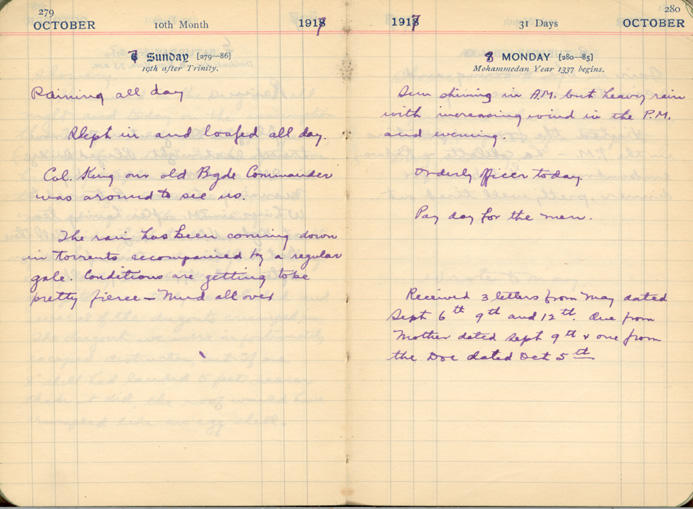 279
OCTOBER 10th Month 1917
7 Sunday [279—86]
19th after Trinity.
Raining all day
Slept in and loafed all day.
Col. King our old Bgde Commander
was around to see us.
The rain has been coming down
in torrents accompanied by a regular
gale. Conditions are getting to be
pretty fierce — Mud all over
280
1917 31 Days OCTOBER
8 MONDAY [280—85]
Mohammedan Year 1337 begins.
Sun shining in A.M. but heavy rain
with increasing wind in the P.M.
and evening.
Orderly officer today
Pay day for the men.
Received 3 letters from May dated
Sept 6th 9th and 12th. One from
Mother dated Sept 9th & one from
the Doc dated Oct 5th